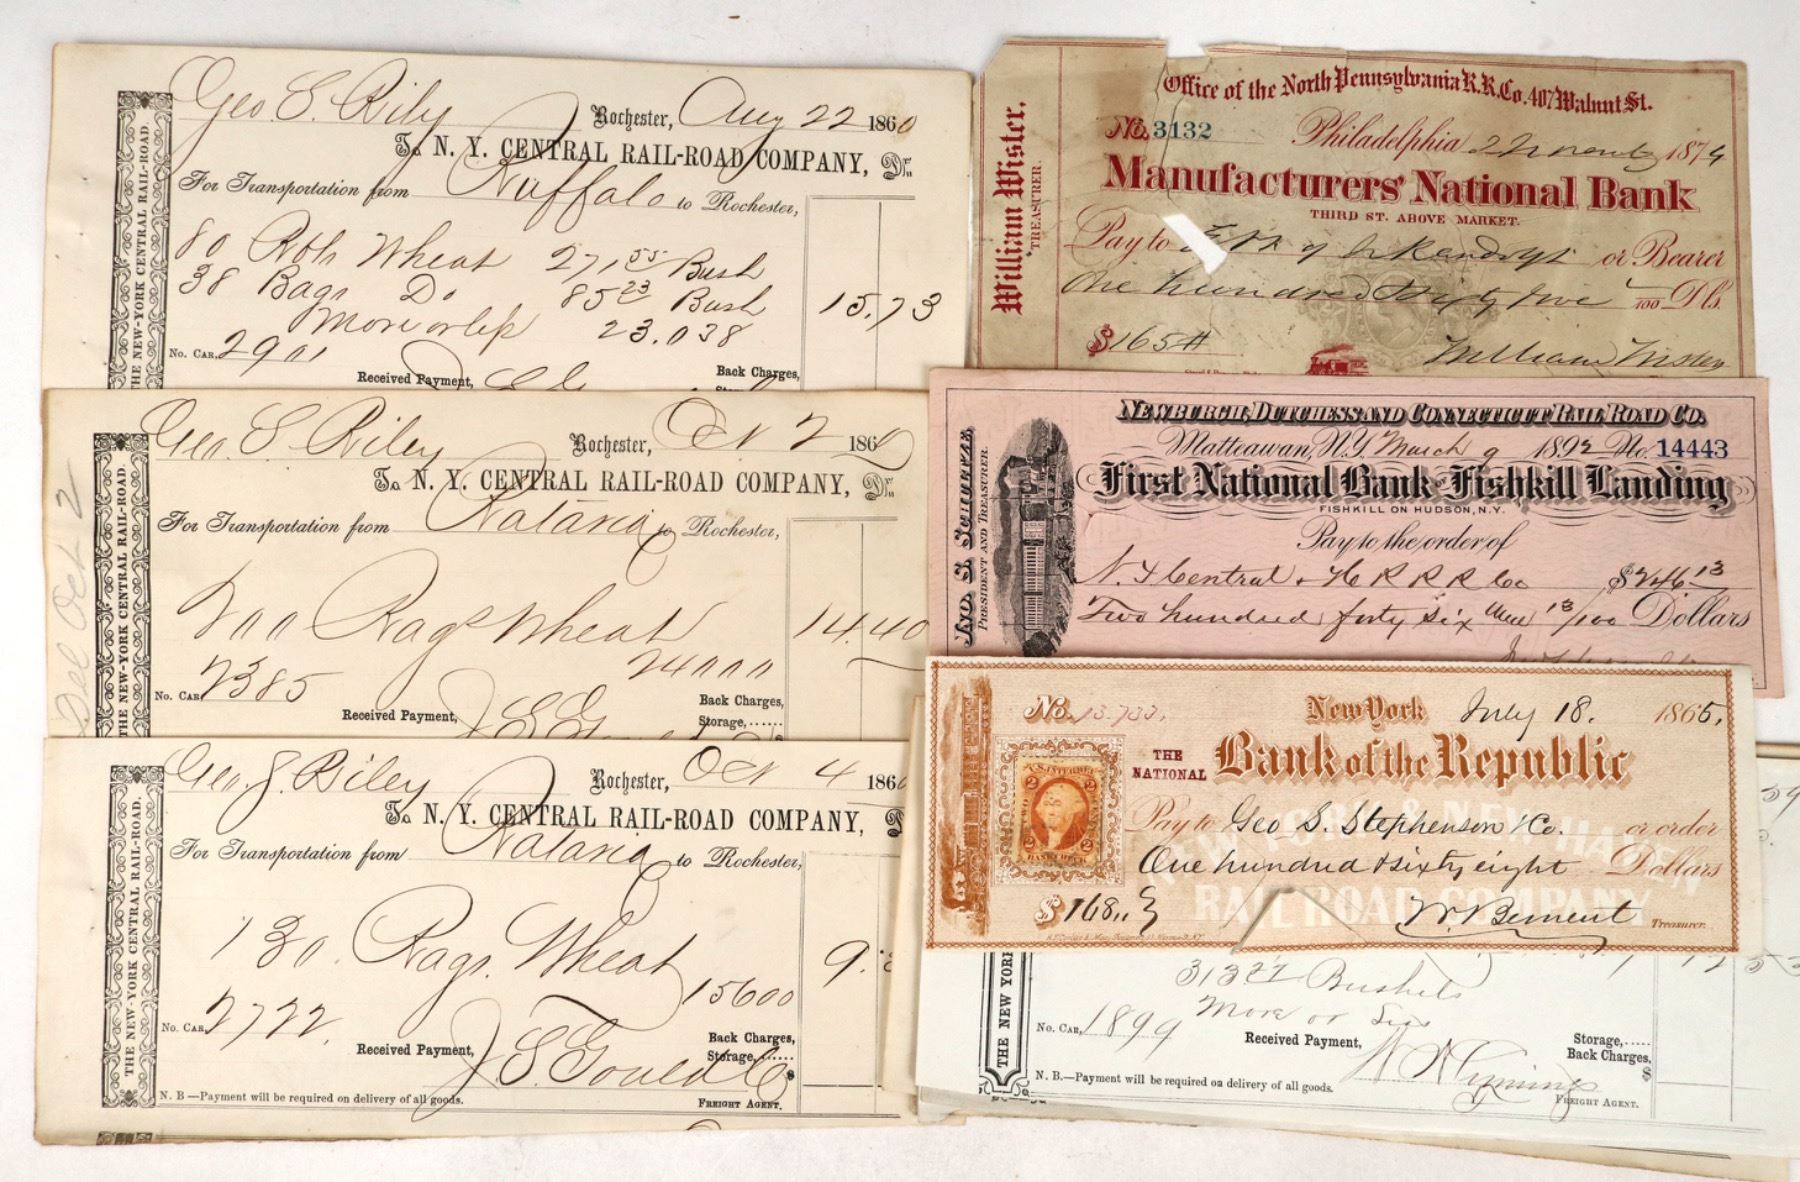 Geo. S. Rily Rochester, Aug 22 1860
To N. Y. CENTRAL RAIL-ROAD COMPANY, Dr.
For Transportation from Buffalo to Rochester,
80 Wheat 271 55 Bush
38 Bags Do 85 23 Bush
More or less 23.038
15.73
No. CAR, 2901
Received Payment,
Back Charges,
THE NEW-YORK CENTRAL RAIL-ROAD.
Del Oct 2
Geo. S. Riley Rochester, Oct 2 1860
To N. Y. CENTRAL RAIL-ROAD COMPANY, Dr.
For Transportation from Batavia to Rochester,
200 Bags Wheat 14.40
24000
No. CAR, 2385
Received Payment,
Back Charges,
Storage,......
THE NEW-YORK CENTRAL RAIL-ROAD.
Geo. S. Riley Rochester, Oct 4 186
To N. Y. CENTRAL RAIL-ROAD COMPANY,
For Transportation from Batavia to Rochester,
130 Bags Wheat 9.
15600
No. CAR, 2722
Received Payment, J. S. Gould
Back Charges,
Storage,......
$
N. B—Payment will be required on delivery of all goods.
FREIGHT AGENT.
THE NEW-YORK CENTRAL RAIL-ROAD.
Office of the North Pennsylvania R.R. Co. 407 Walnut St.
No. 3132 Philadelphia 2 1874
Manufacturers' National Bank
THIRD ST. ABOVE MARKET.
Pay to or Bearer
One hundred Sixty five /100 Dls.
$165 William Wister
William Wister,
TREASURER.
NEWBURGH, DUTCHESS AND CONNECTICUT RAIL ROAD CO.
Matteawan, N.Y. March 9 1892 No. 14443
First National Bank of Fishkill Landing
FISHKILL ON HUDSON, N.Y.
Pay to the order of
N. Y Central + H R R R Co $246 13
Two hundred forty six 13/100 Dollars
PRESIDENT AND TREASURER.
No. 13.733. New York July 18. 1865.
THE NATIONAL Bank of the Republic
Pay to Geo S. Stephenson & Co. or order
One hundred & sixty eight Dollars
$168
W. Bement Treasurer.
NEW YORK & NEW HAVEN
RAIL ROAD COMPANY
U.S. INTER. REV.
2 2
2 2
BANK CHECK
313 27 Bushels
More or Less
No. CAR, 1899
Received Payment,
Storage,......
Back Charges,
$
N. B.—Payment will be required on delivery of all goods.
FREIGHT AGENT.
THE NEW YORK